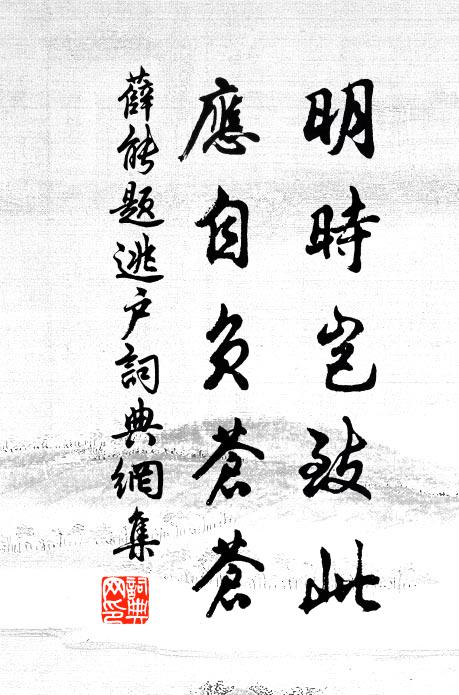 明時豈致此
應自負蒼蒼
薛能題逃户詞典網集
詞典网印